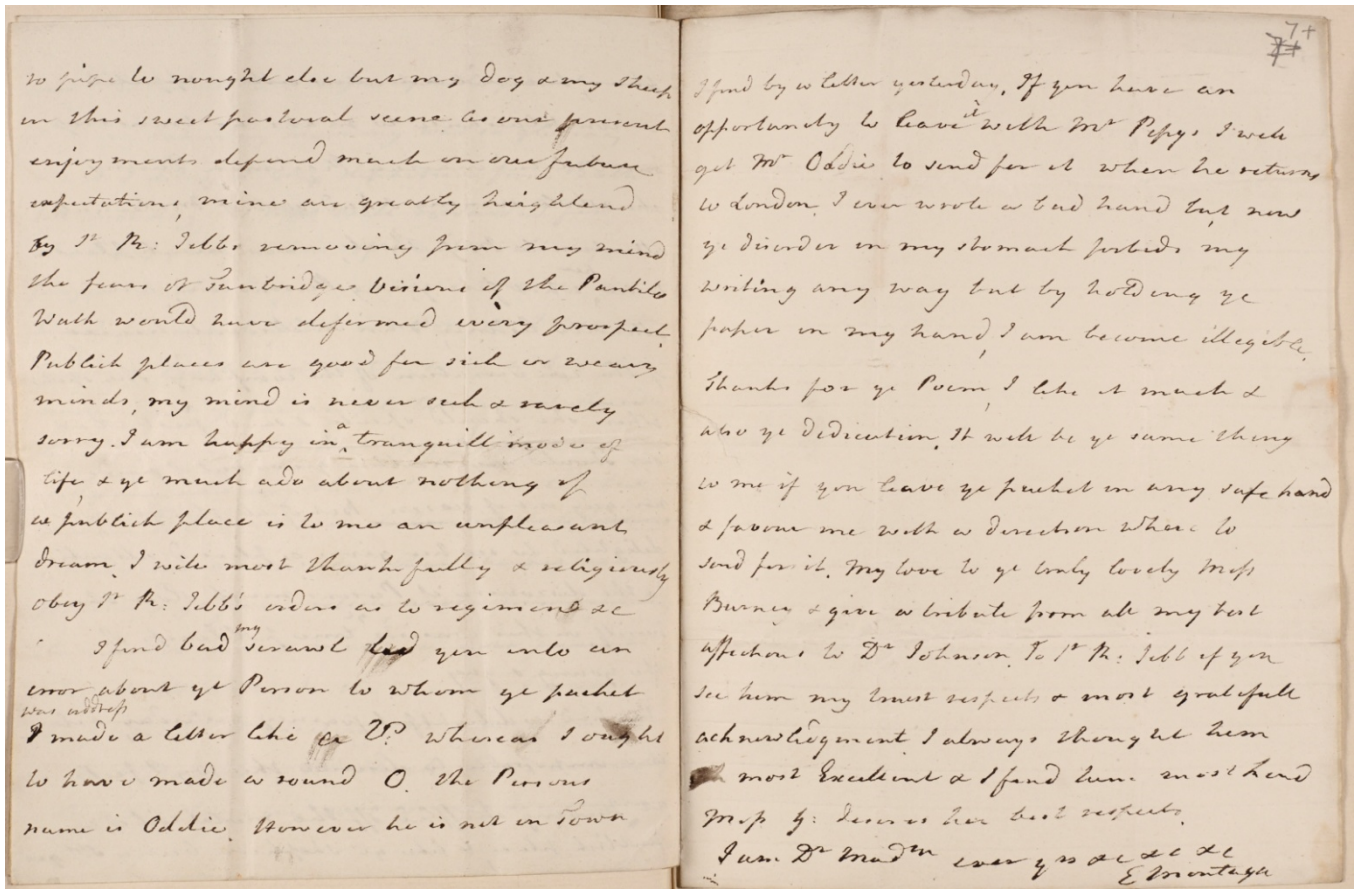 to pipe to nought else but my Dog & my Sheep
in this sweet pastoral scene. As our present
enjoyments depend much on our future
expectations, mine are greatly heightend
by Sr R: Jebbs removing from my mind
the fears of Tunbridge. Visions of the Pantile
Walk would have deformed every prospect.
Publick places are good for sick or weary
minds, my mind is never sick & rarely
sorry. I am happy in a tranquill mode of
life, & ye much ado about nothing of
a publick place is to me an unpleasant
dream. I will most thankfully & religiously
obey Sr R: Jebb's orders as to regimen &c
I find bad my scrawl led you into an
error about ye Person to whom ye packet
was addresst
I made a letter like a V? whereas I ought
to have made a round O. the Persons
name is Oddie. However he is not in Town
7+
I find by a letter yesterday. If you have an
opportunity to leave it with Mr Pepys I will
get Mr Oddie to send for it when he returns
to London. I ever wrote a bad hand but now
ye disorder in my stomach forbids my
writing any way but by holding ye
paper in my hand, I am become illegible.
Thanks for ye Poem, I like it much &
also ye dedication. It will be ye same thing
to me if you leave ye packet in any safe hand
& favour me with a direction where to
send for it. My love to ye truly lovely Miss
Burney & give a tribute from all my best
affections to Dr Johnson. To Sr R: Jebb if you
see him my truest respects & most gratefull
acknowledgment. I always thought him
most Excellent & I find him most kind
Miss G: desires her best respects.
I am Dr Madm ever yrs &c &c &c
E Montagu